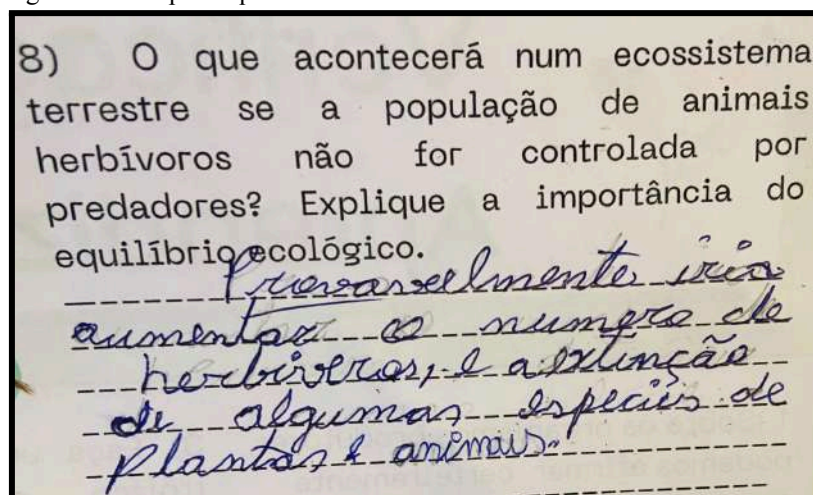 8) O que acontecerá num ecossistema
terrestre se a população de animais
herbívoros não for controlada por
predadores? Explique a importância do
equilíbrio ecológico.
Provavelmente iria
aumentar o numero de
herbivoros, e a extinção
de algumas especies de
plantas e animais.